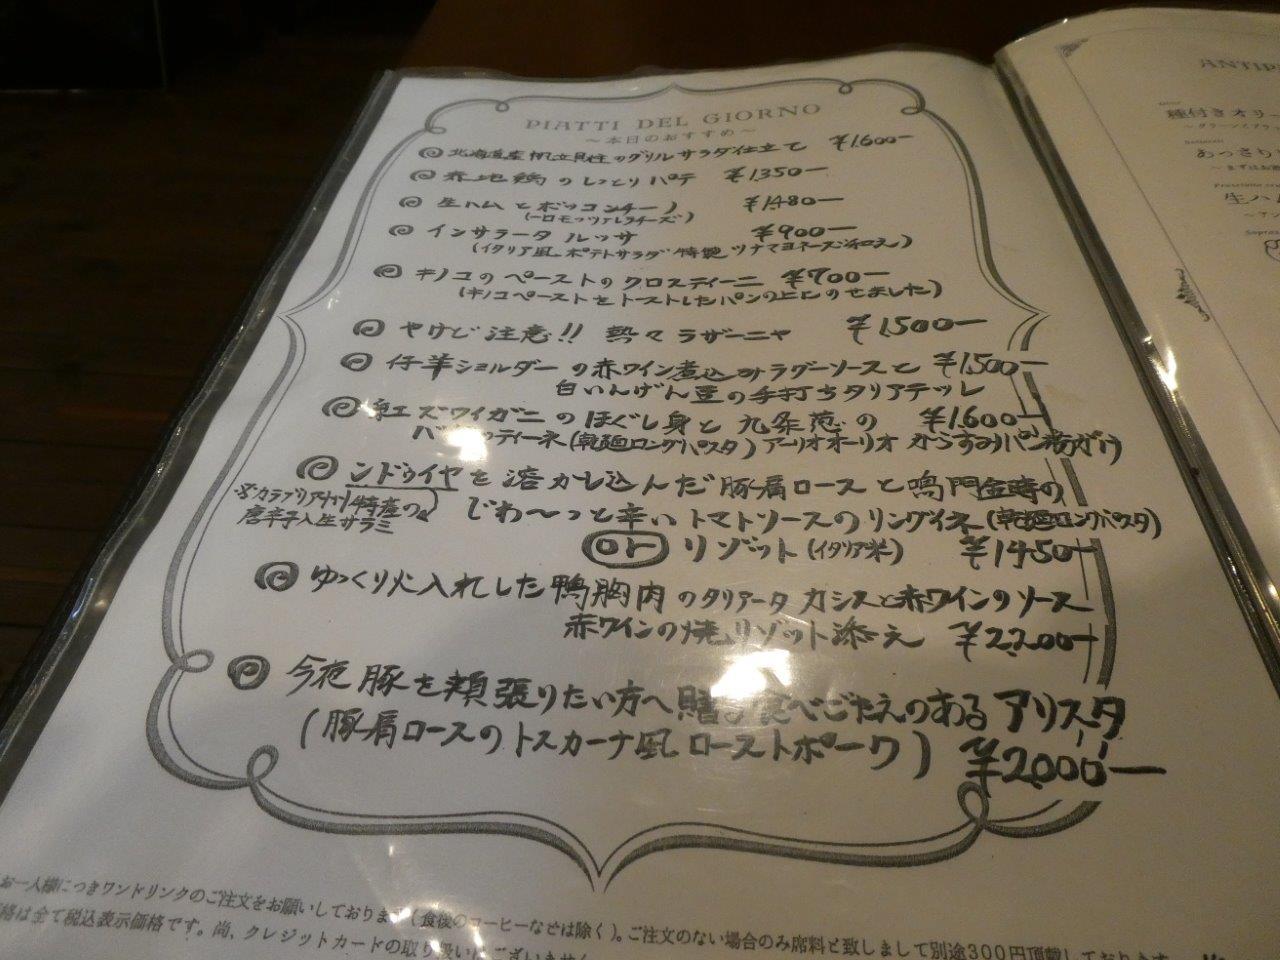 PIATTI DEL GIORNO
～本日のおすすめ～
北海道産帆立貝柱のグリル サラダ仕立て ¥1.600-
赤地鶏のしっとりパテ ¥1.350-
生ハムとボッコンチーノ ¥1.480-
(一口モッツァレラチーズ)
インサラータ ルッサ ¥900-
(イタリア風 ポテトサラダ 特製 ツナマヨネーズ和え)
キノコのペーストのクロスティーニ ¥700-
(キノコペーストをトーストしたパンの上にのせました)
やけど注意!! 熱々ラザーニャ ¥1.500-
仔羊ショルダーの赤ワイン煮込みラグーソースと ¥1.500-
白いんげん豆の手打ちタリアテッレ
紅ズワイガニのほぐし身と九条葱の ¥1.600-
(乾麺ロングパスタ) アーリオオーリオ からすみパン粉がけ
ンドゥイヤを溶かし込んだ豚肩ロースと鳴門金時の
※カラブリア州特産の
唐辛子入生サラミ
じわ～っと辛いトマトソースのリングイネ(乾麺ロングパスタ)
or リゾット(イタリア米) ¥1450-
ゆっくり火入れした鴨胸肉のタリアータ カシスと赤ワインのソース
赤ワインの焼リゾット添え ¥2.200-
今夜豚を頬張りたい方へ贈る食べごたえのあるアリスタ
(豚肩ロースのトスカーナ風ローストポーク) ¥2.000-
お一人様につきワンドリンクのご注文をお願いしております(食後のコーヒーなどは除く)。ご注文のない場合のみ席料と致しまして別途300円頂戴しております。
格は全て税込表示価格です。尚、クレジットカードの取り扱いはございません
ANTIP
種付きオリー
あっさり
生ハム